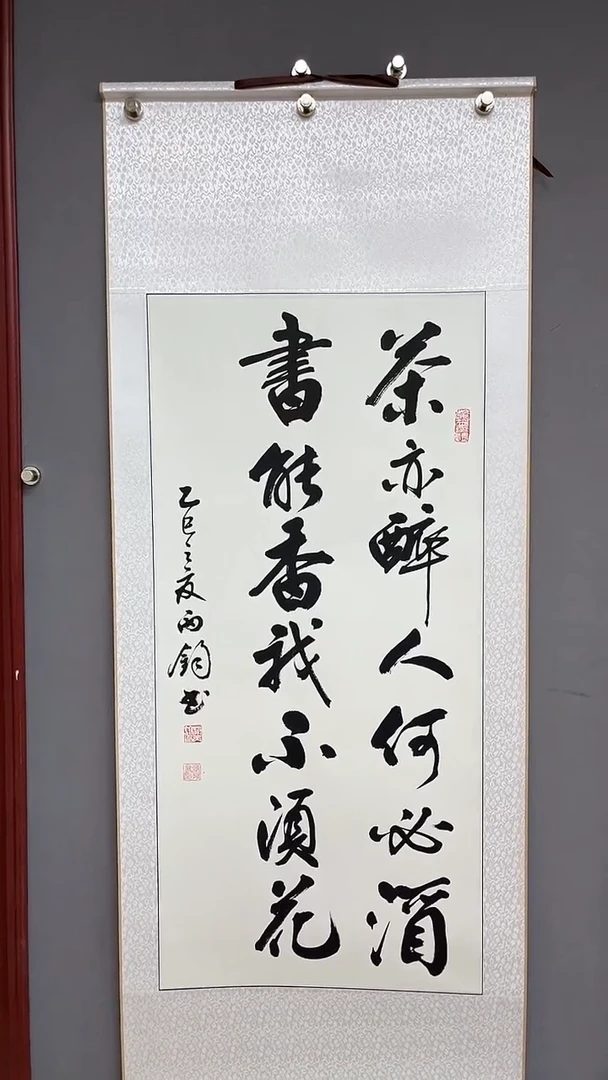 茶亦醉人何必酒
書能香我不須花
乙巳之夏雨鈞书